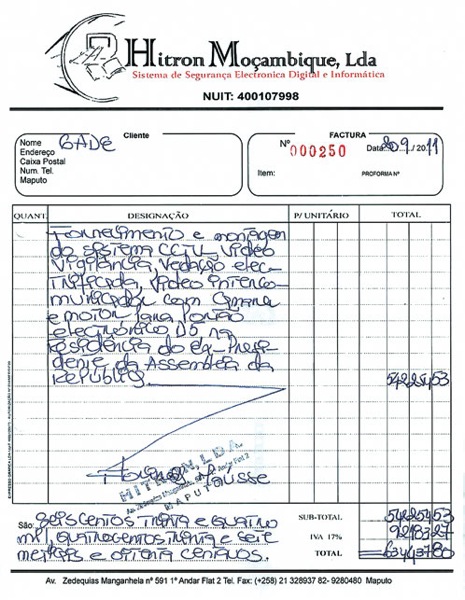 Hitron Moçambique, Lda
Sistema de Segurança Electronica Digital e Informática
NUIT: 400107998
Cliente
Nome GADE
Endereço
Caixa Postal
Num. Tel.
Maputo
FACTURA
Nº 000250 Data: 20/9/2011
Item: PROFORMA Nº
QUANT. DESIGNAÇÃO P/ UNITÁRIO TOTAL
Fornecimento e montagem
do sistema CCTV_Video
Vigilância, Vedação elec-
trificada, Video interco-
municador com Camara
e motor para Portão
electrónico D5 na
residência do Ex-Presi-
dente da Assembleia da
República 542254,53
HITRON, LDA
MAPUTO
São: Seiscentos trinta e quatro
mil, quatrocentos trinta e sete
meticais e oitenta centavos.
SUB-TOTAL 542254,53
IVA 17% 92183,27
TOTAL 634437,80
Av. Zedequias Manganhela nº 591 1º Andar Flat 2 Tel. Fax: (+258) 21 328937 82- 9280480 Maputo